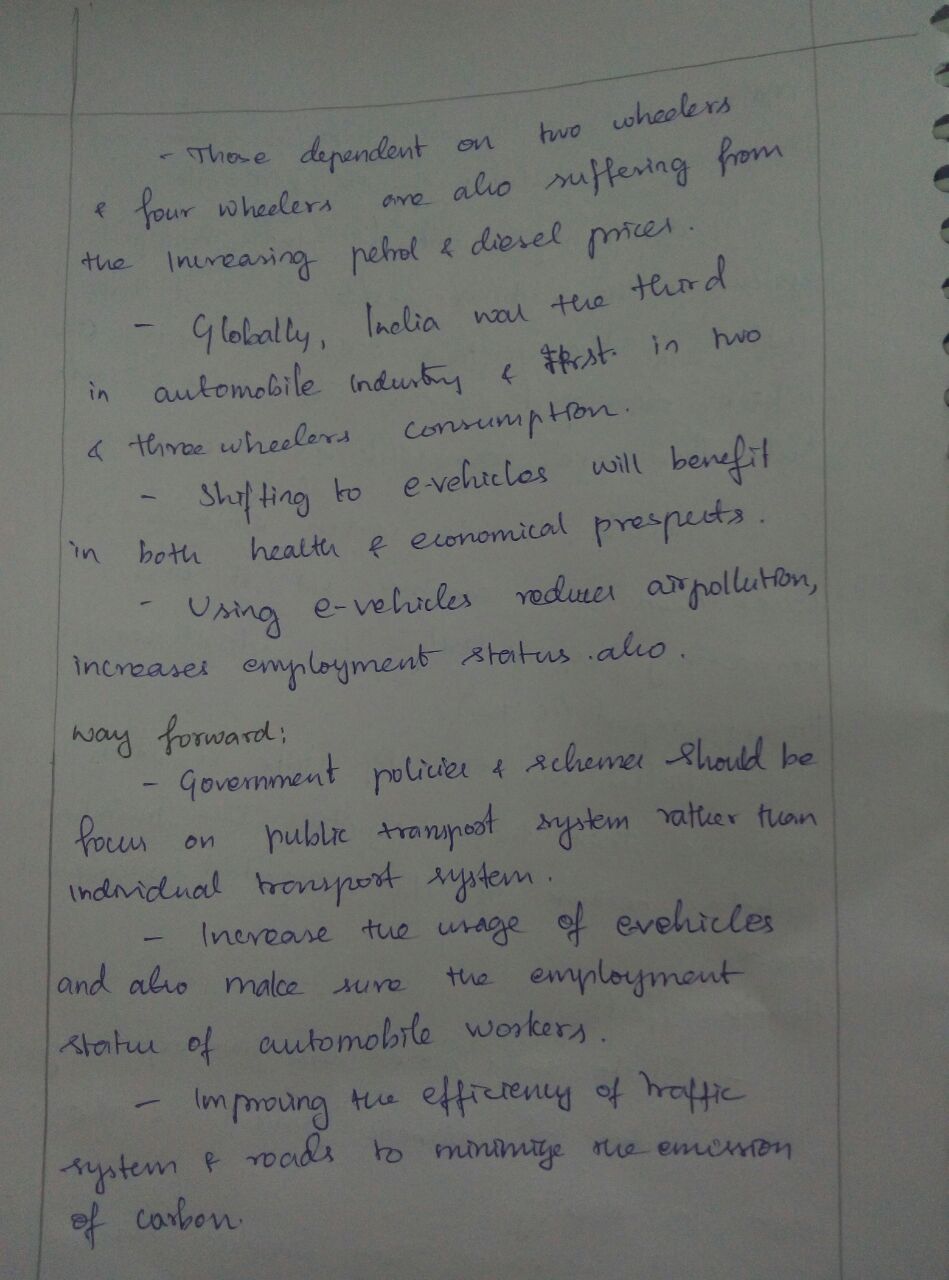 - Those dependent on two wheelers
& four wheelers are also suffering from
the increasing petrol & diesel prices.
- Globally, India was the third
in automobile industry & first in two
& three wheelers consumption.
- Shifting to e-vehicles will benefit
in both health & economical prospects.
- Using e-vehicles reduces airpollution,
increases employment status also.
Way forward:
- Government policies & schemes should be
focus on public transport system rather than
individual transport system.
- Increase the usage of evehicles
and also make sure the employment
status of automobile workers.
- Improving the efficiency of traffic
system & roads to minimize the emission
of carbon.